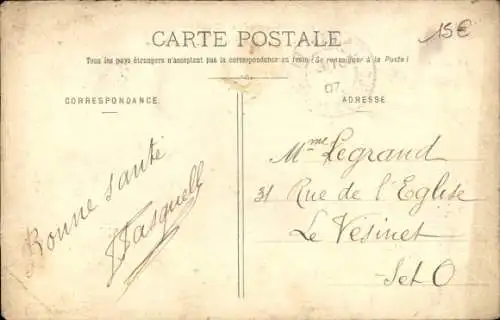 CARTE POSTALE
15€
Tous les pays étrangers n'acceptent pas la correspondance au recto (Se renseigner à la Poste)
07
CORRESPONDANCE
ADRESSE
Bonne santé
Mme Legrand
31 Rue de l'Eglise
Le Vésinet
S et O